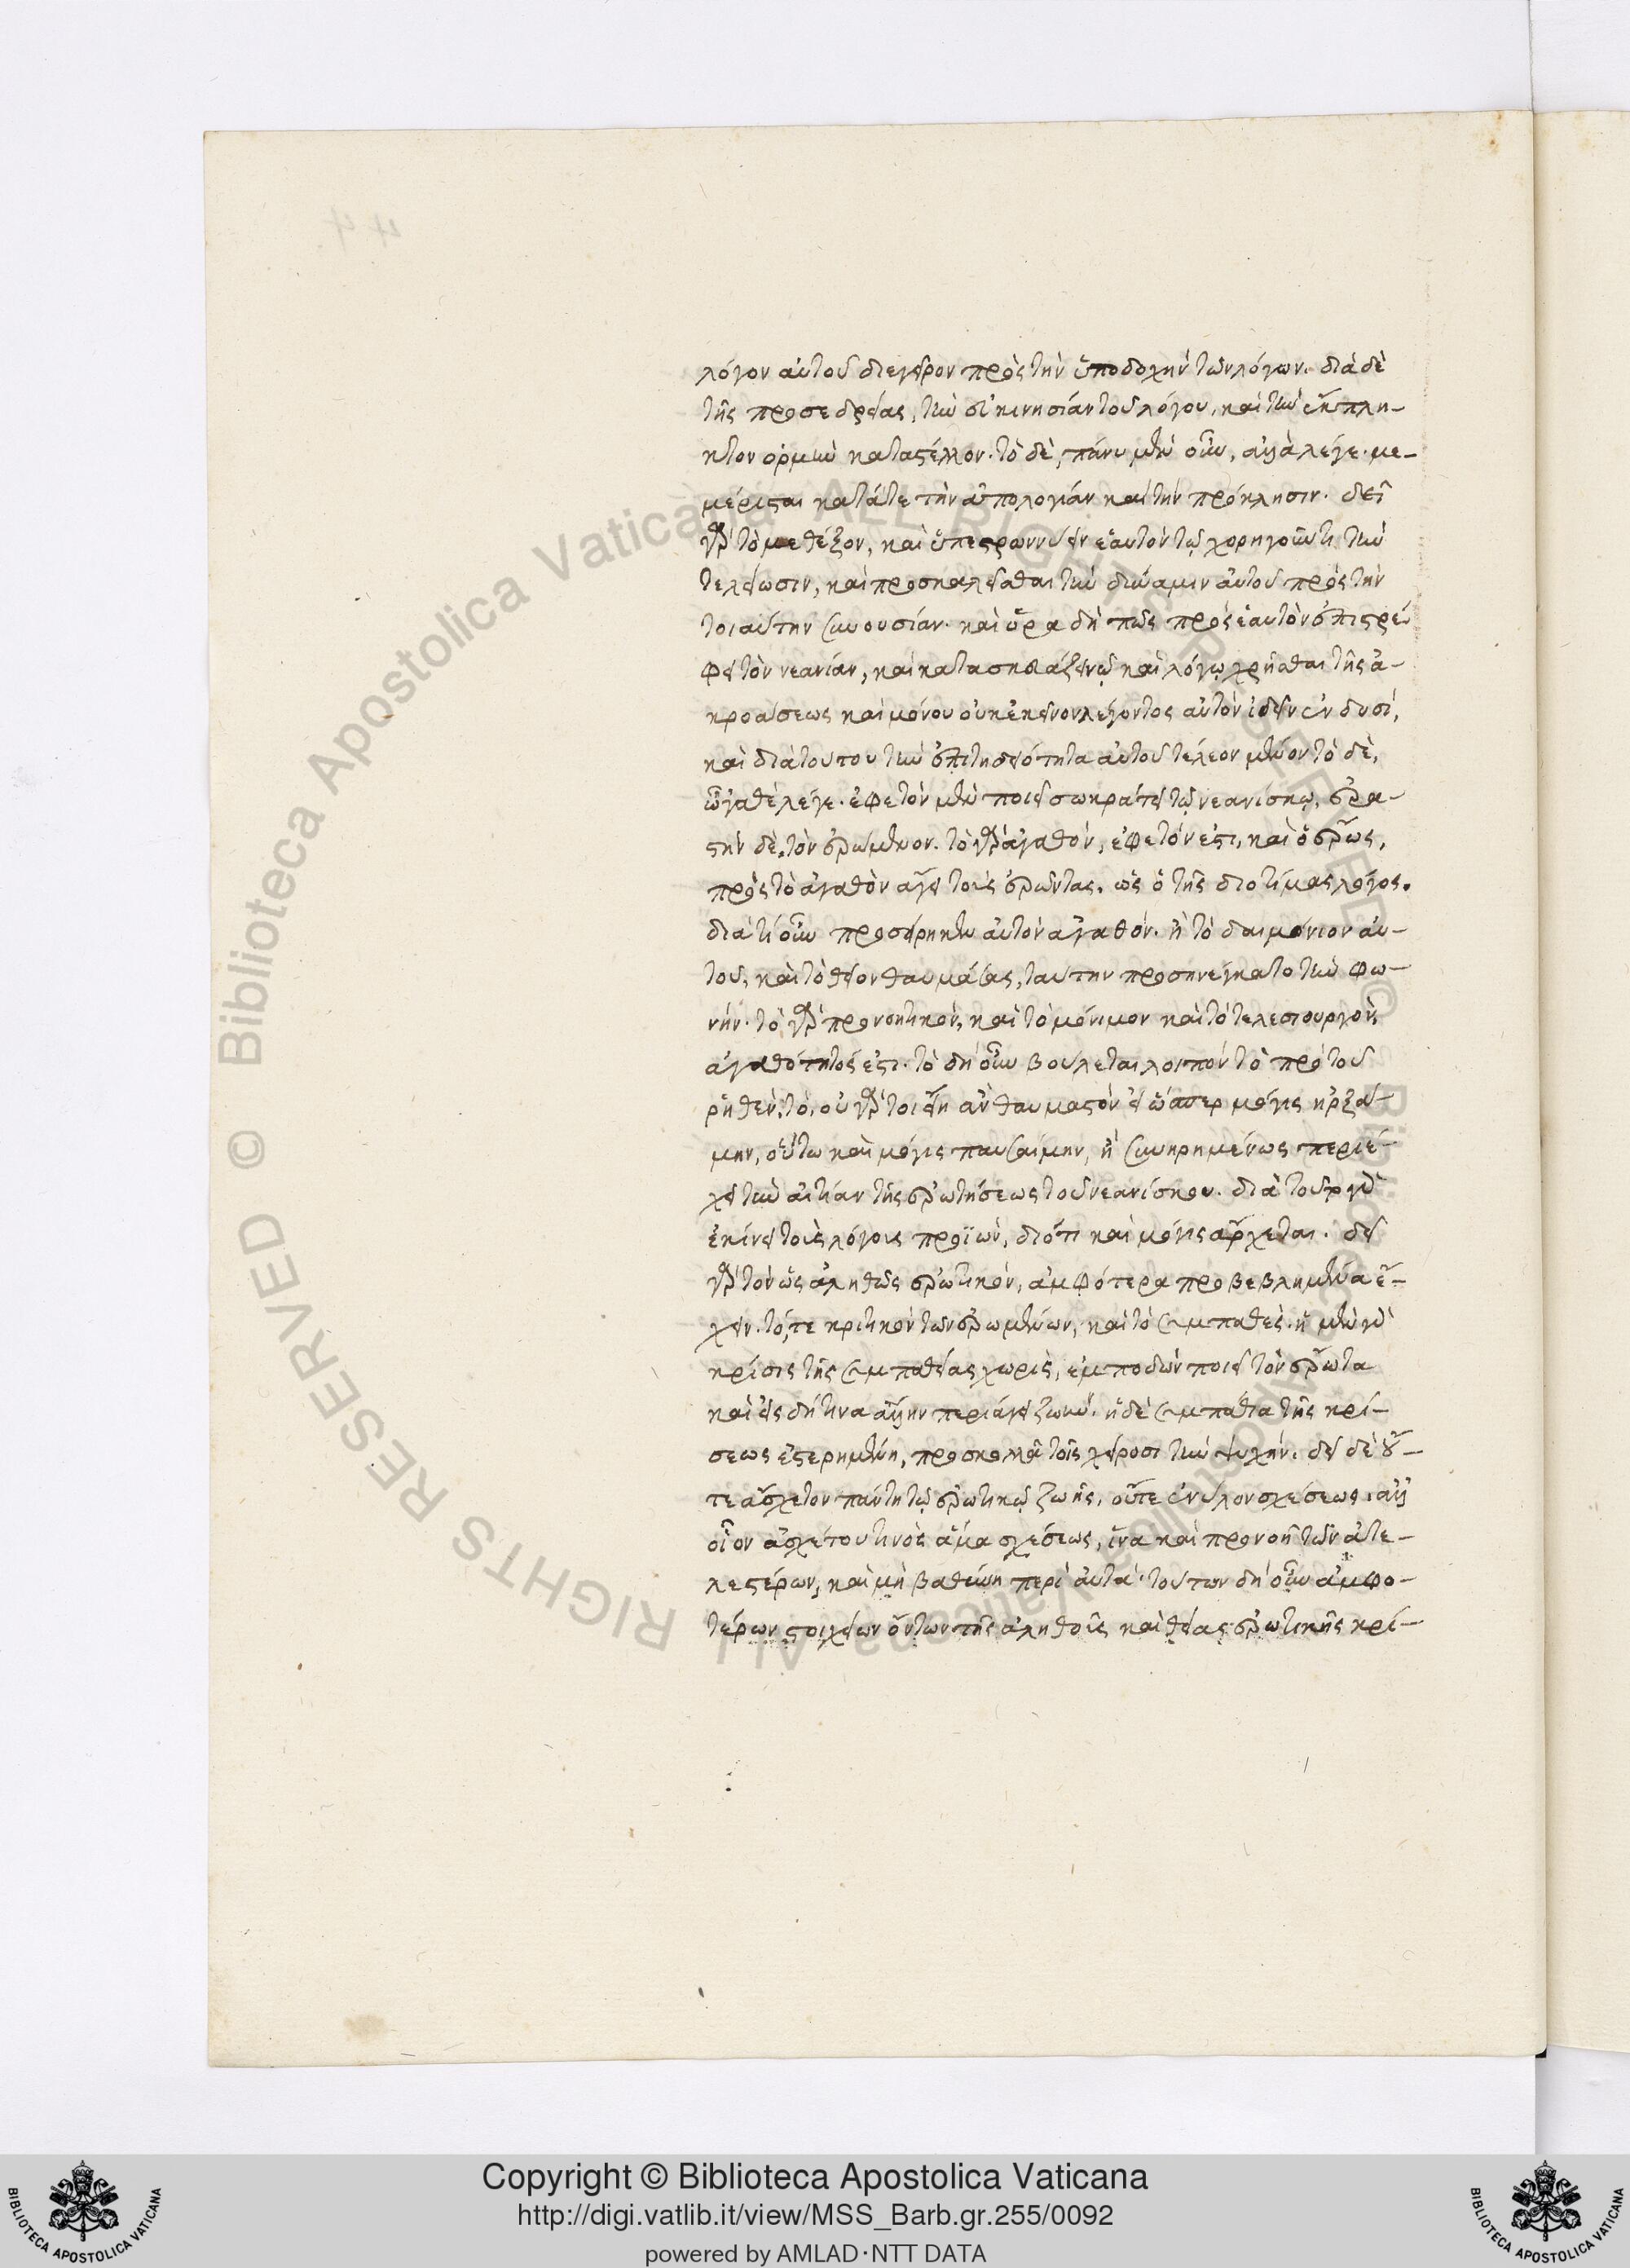 λόγον αὐτοῦ διεγεῖρον πρὸς τὴν ὑποδοχὴν τῶν λόγων. διὰ δὲ
τῆς προσεδρείας, τὴν
τοῦ λόγου, καὶ τὴν ἔμπλη-
κτον ὁρμὴν καταστέλλον. τὸ δὲ, πάνυ μὲν οὖν, ἀλλὰ λέγε. με-
μέρισται κατά τε τὴν ἀπολογίαν καὶ τὴν πρόκλησιν. δεῖ
γὰρ τὸ μεθέξον, καὶ ὑποστρωννύειν ἑαυτὸν τῷ χορηγοῦντι τὴν
τελείωσιν, καὶ προσκαλεῖσθαι τὴν δύναμιν αὐτοῦ πρὸς τὴν
τοιαύτην συνουσίαν. καὶ ὅρα δὴ πῶς πρὸς ἑαυτὸν ἐπιστρέ-
φει τὸν νεανίαν, καὶ κατασκευάζει
καὶ λόγῳ χρῆσθαι τῆς ἀ-
κροάσεως καὶ μόνου οὐκ ἐκεῖνον λέγοντος αὐτὸν ἰδεῖν ἐνδυσί,
καὶ διὰ τούτου τὴν ἐπιτηδειότητα αὐτοῦ τέλεον μένον τὸ δὲ,
ὦγαθὲ λέγε. ἐφετὸν μὲν ποιεῖ σωκράτει τῷ νεανίσκῳ, ἐρα-
στὴν δὲ, τὸν ἐρώμενον. τὸ γὰρ ἀγαθόν, ἐφετόν ἐστι, καὶ ὁ ἔρως,
πρὸς τὸ ἀγαθὸν ἄγει τοὺς ἐρῶντας. ὡς ὁ τῆς διοτίμας λόγος.
διὰ τί οὖν προσείρηκεν αὐτὸν ἀγαθόν. ἢ τὸ δαιμόνιον αὐ-
τοῦ, καὶ τὸ θεῖον θαυμάσας, ταύτην προσηνέγκατο τὴν φω-
νήν. τὸ γὰρ προνοητικὸν, καὶ τὸ μόνιμον καὶ τὸ τελεσιουργὸν,
ἀγαθότητός ἐστι. τὸ δὴ οὖν βούλεται λοιπόν τὸ πρὸ τοῦ
ῥηθέν, τὸ, οὐ γάρ τοι εἴη ἂν θαυμαστὸν εἰ ὥσπερ μόγις ἠρξά-
μην, οὕτω καὶ μόγις παυσαίμην, ἢ συνῃρημένως περιέ-
χει τὴν αἰτίαν τῆς ἐρωτήσεως τοῦ νεανίσκου. διὰ τοῦ
ἐκίνει τοὺς λόγους προϊών, διότι καὶ μόγις ἄρχεται. δεῖ
γὰρ τὸν ὡς ἀληθῶς ἐρωτικὸν, ἀμφότερα προβεβλημένα ἔ-
χειν. τό, τε κριτικὸν τῶν ἐρωμένων, καὶ τὸ συμπαθές. ἡ μὲν γὰρ
κρίσις τῆς συμπαθείας χωρὶς, ἐμποδὼν ποιεῖ τὸν ἔρωτα
καὶ εἰς δή τινα ἄλλην περιάγει ζωήν. ἡ δὲ συμπάθεια τῆς κρί-
σεως ἐστερημένη, προσκολλᾷ τοῖς χείροσι τὴν ψυχήν. δεῖ δὲ οὔ-
τε ἄσχετον πάντῃ τῷ ἐρωτικῷ ζωῆς, οὔτε ἐνύλου σχέσεως. ἀλλ'
οἷον ἀσχέτου τινὸς ἅμα σχέσεως, ἵνα καὶ προνοῇ τῶν ἀτε-
λεστέρων, καὶ μὴ βαθύνῃ περὶ αὐτά. τούτων δὴ οὖν ἀμφο-
τέρων στοιχείων ὄντων τῆς ἀληθοῦς καὶ θείας ἐρωτικῆς κρί-
Copyright © Biblioteca Apostolica Vaticana
http://digi.vatlib.it/view/MSS_Barb.gr.255/0092
powered by AMLAD·NTT DATA